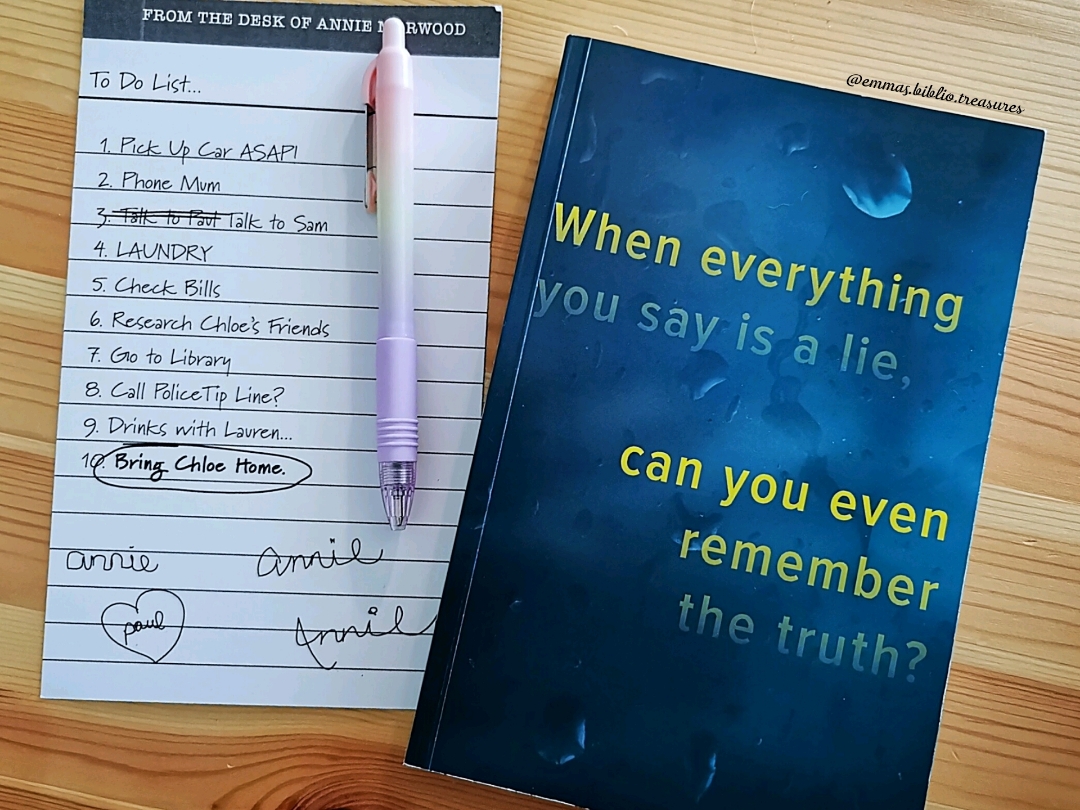 FROM THE DESK OF ANNIE N RWOOD
To Do List...
1. Pick Up Car ASAP!
2. Phone Mum
3. Talk to Paul Talk to Sam
4. LAUNDRY
5. Check Bills
6. Research Chloe's Friends
7. Go to Library
8. Call Police Tip Line?
9. Drinks with Lauren...
10. Bring Chloe Home.
annie annie
paul Annie
@emmas.biblio.treasures
When everything
you say is a lie,
can you even
remember
the truth?